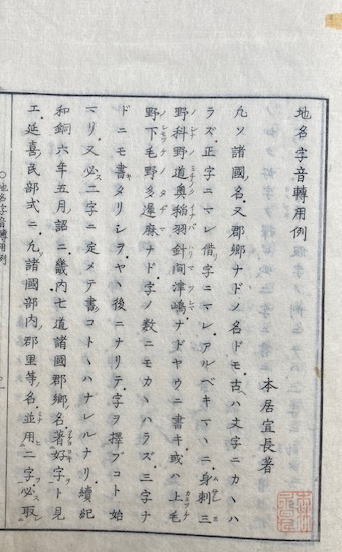 地名字音轉用例
本居宣長著
凡ソ諸國ノ名又郡鄕ナドノ名ドモ古ハ文字ニカヽハ
ラズ正字ニマレ借字ニマレアルベキマヽニ身刺三
野科野道奧稻羽針間津嶋ナドヤウニ書キ或ハ上毛
野下毛野多遲麻ナド字ノ數ニモカヽハラズ三字ナ
ドニモ書タリシヲヤヽ後ニナリテ字ヲ擇ブコト始
マリ又必ズ二字ニ定メテ書コトヽハナレルナリ續紀
和銅六年五月詔ニ畿内七道諸國郡鄕ノ名著好字ト見
エ延喜民部式ニ凡諸國部内郡里等名並用二字必取
○地名字音轉用例